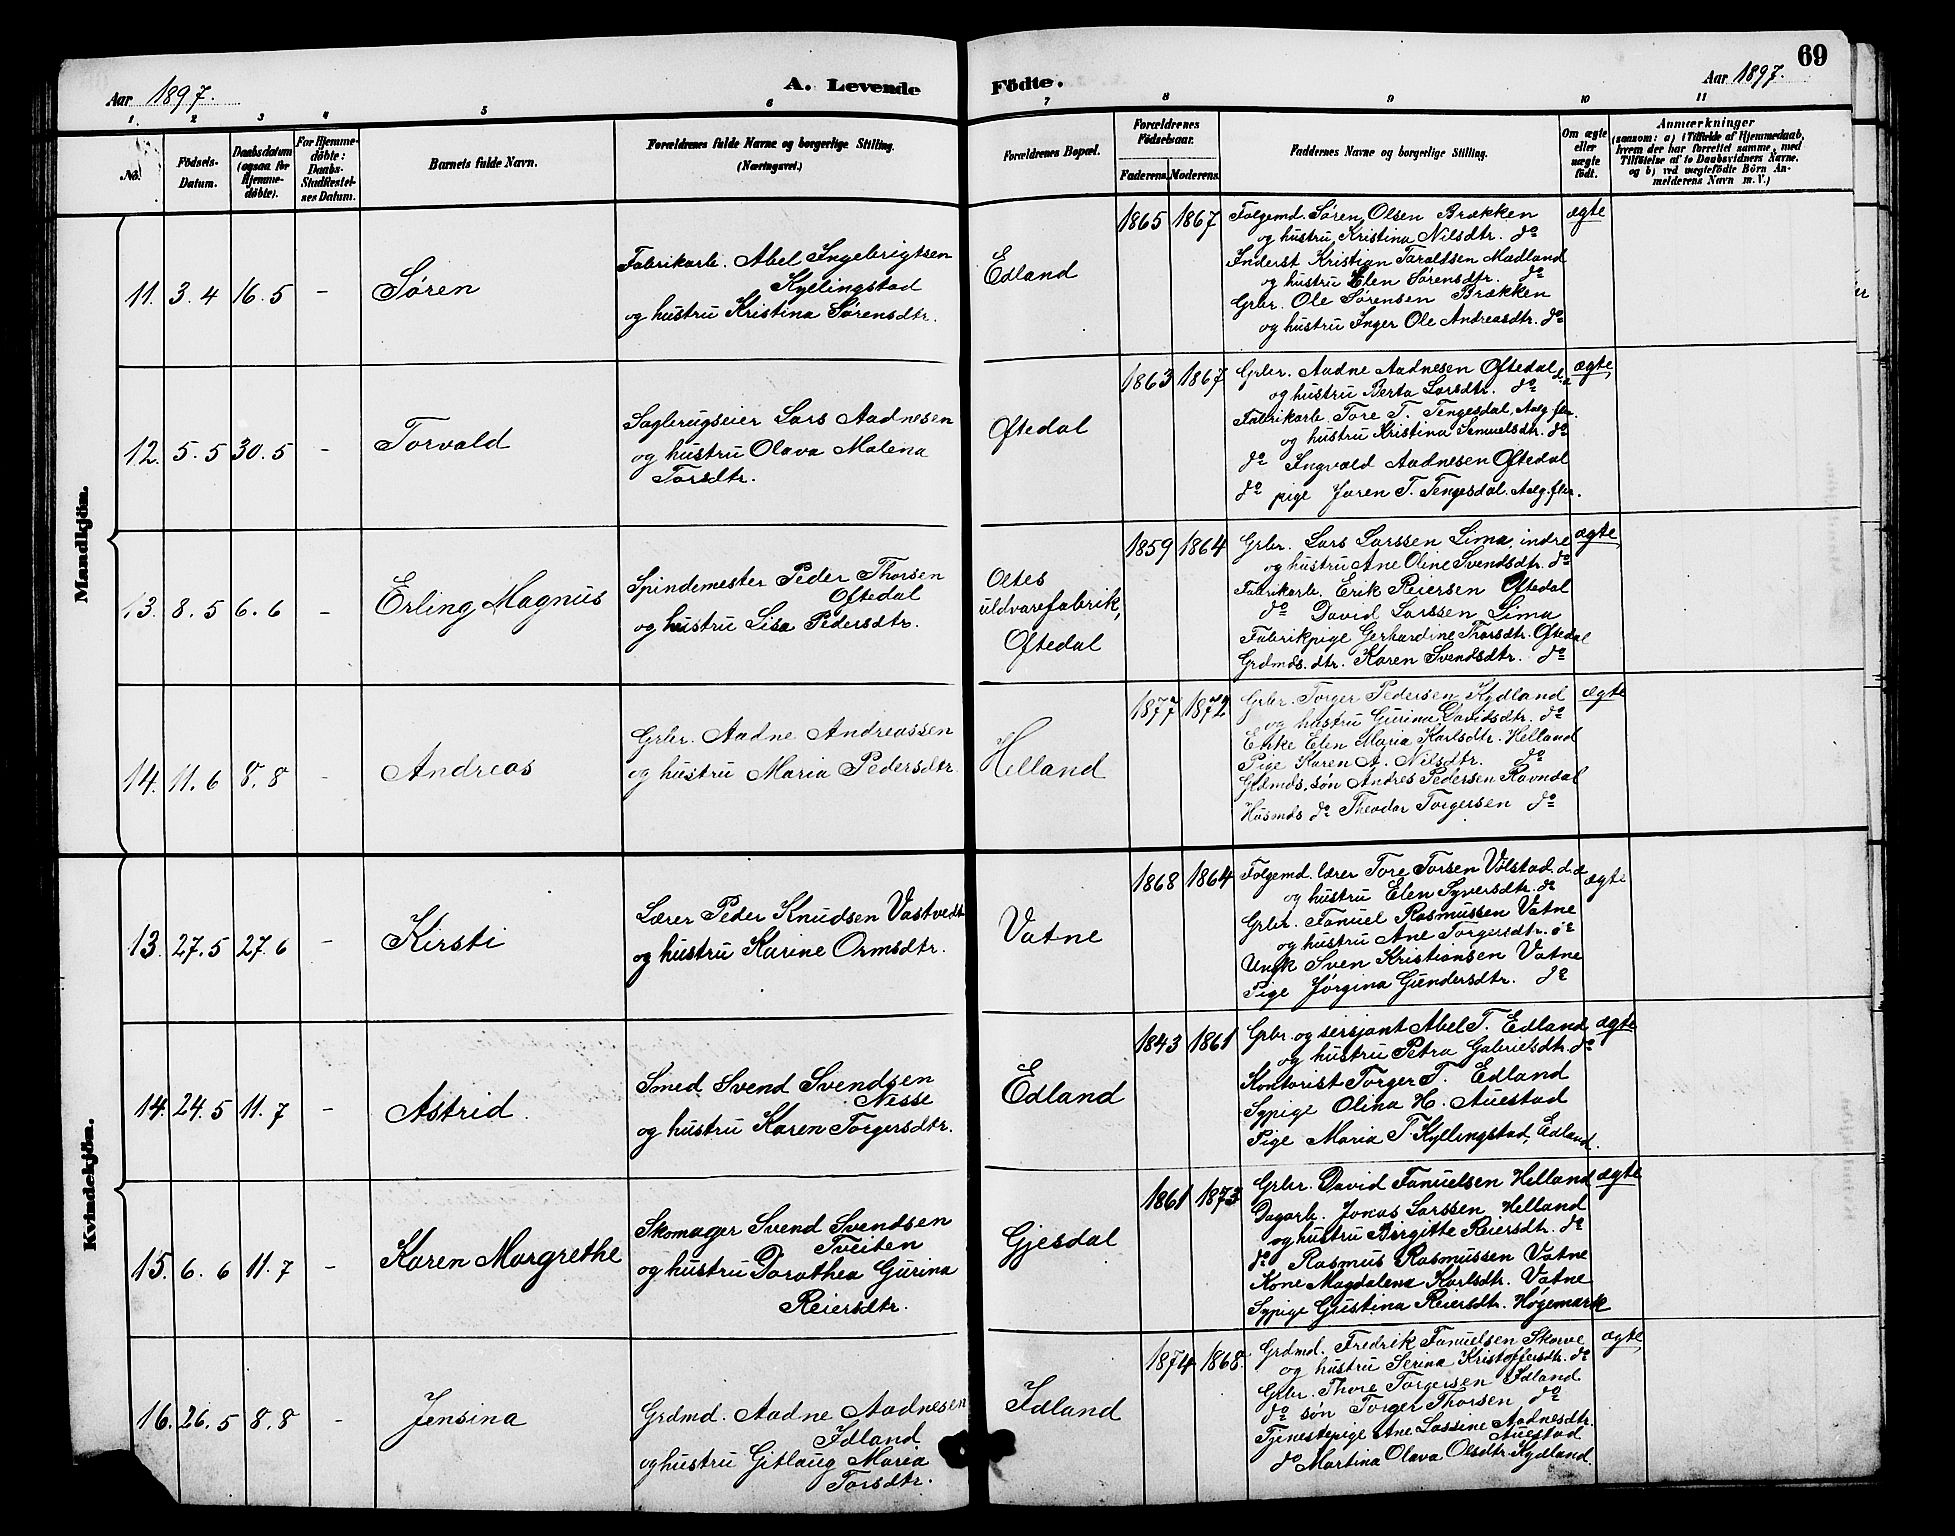 69
Aar 1897.
A. Levende Födte.
Aar 1897.
1. 2 3 4 5 6 7 8 9 10 11
No.
Födsels-
Datum.
Daabsdatum
(ogsaa for
Hjemme-
döbte).
For Hjemme-
döbte:
Daabs-
Stadfæstel-
ses Datum.
Barnets fulde Navn.
Forældrenes fulde Navne og borgerlige Stilling.
(Næringsvei.)
Forældrenes Bopæl.
Forældrenes
Födselsaar.
Faderens. Moderens.
Faddernes Navne og borgerlige Stilling.
Om ægte
eller
uægte
födt.
Anmærkninger
(saasom: a) i Tilfælde af Hjemmedaab,
hvem der har forrettet samme, med
Tilföielse af to Daabsvidners Navne.
og b) ved uægtefödte Börn An-
melderens Navn m. V.)
Mandkjön.
11. 3.4 16.5 -
Søren
Fabrikarb. Abel Ingebrigtsen
Kyllingstad
og hustru Kristina Sørensdtr.
Edland
1865 1867
Følgemd. Søren Olsen Brækken
og hustru Kristina Nilsdtr. do
Inderst Kristian Taraldsen Madland
og hustru Elen Sørensdtr. do
Grbr. Ole Sørensen Brækken
og hustru Inger Ole Andreasdtr. do
ægte
12. 5.5 30.5 -
Torvald
Sagbrugseier Lars Aadnesen
og hustru Olava Malena
Torsdtr.
Oftedal
1863 1867
Grbr. Aadne Aadnesen Oftedal
og hustru Berta Larsdtr. do
Fabrikarb. Tore T. Tengesdal,
og hustru Kristina Samuelsdtr. do
do Ingvald Aadnesen Oftedal
do pige Jaren T. Tengesdal.
ægte
13. 8.5 6.6 -
Erling Magnus
Spindemester Peder Thorsen
Oftedal
og hustru Lisa Pedersdtr.
Oltes
uldvarefabrik,
Oftedal
1859 1864
Grbr. Lars Larssen Lima, indre
og hustru Ane Oline Svendsdtr. do
Fabrikarb. Erik Reiersen Oftedal
do David Larssen Lima
Fabrikpige Gerhardine Thorsdtr. Oftedal
Grdmds. dtr. Karen Svendsdtr. do
ægte
14. 11.6 8.8 -
Andreas
Grbr. Aadne Andreassen
og hustru Maria Pedersdtr.
Helland
1877 1872
Grbr. Torger Pedersen Kydland
og hustru Gurina Davidsdtr. do
Enke Elen Maria Karlsdtr. Helland
Pige Karen A. Nilsdtr. do
Grdmds. søn Andres Pedersen Ravndal
Husmds do Theodor Torgersen do
ægte
Kvindekjön.
13. 27.5 27.6 -
Kirsti
Lærer Peder Knudsen Vastvedt
og hustru Karine Ormsdtr.
Vatne
1868 1864
Følgemd. lærer Tore Torsen Vølstad
og hustru Elen Syversdtr. do
Grbr. Fanuel Rasmussen Vatne
og hustru Ane Torgersdtr. do
Ungk Sven Kristiansen Vatne
Pige Jørgina Gundersdtr. do
ægte
14. 24.5 11.7 -
Astrid.
Smed Svend Svendsen
Nesse
og hustru Karen Torgersdtr.
Edland
1843 1861
Grbr. og sersjant Abel T. Edland
og hustru Petra Gabrielsdtr. do
Kontorist Torger T. Edland
Sypige Olina H. Auestad
Pige Maria T. Kyllingstad, Edland.
ægte
15. 6.6 11.7 -
Karen Margrethe
Skomager Svend Svendsen
Tveiten
og hustru Dorothea Gurina
Reiersdtr.
Gjesdal
1861 1873
Grbr. David Fanuelsen Helland
Dagarb. Jonas Larssen Helland
og hustru Birgitte Reiersdtr. do
do Rasmus Rasmussen Vatne
Kone Magdalena Karlsdtr. Vatne
Sypige Gustina Reiersdtr. Høgemark
ægte
16. 26.5 8.8 -
Jensina
Grdmd. Aadne Aadnesen
Idland
og hustru Gitlaug Maria
Torsdtr.
Idland
1874 1868.
Grdmd. Fredrik Fanuelsen Skurve
og hustru Serina Kristoffersdtr. do
Grbr. Thore Torgersen Idland
do søn Torger Thorsen do
Tjenestepige Ane Lassine Aadnesdtr.
Auestad
do Martina Olava Olsdtr. Kydland.
ægte